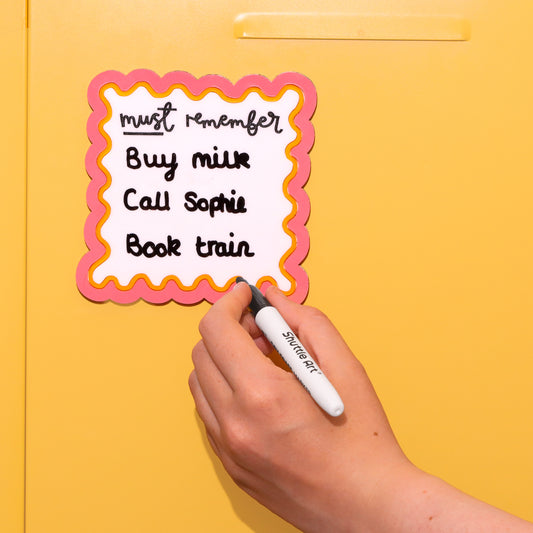 must remember
Buy milk
Call Sophie
Book train
Shuttle Art